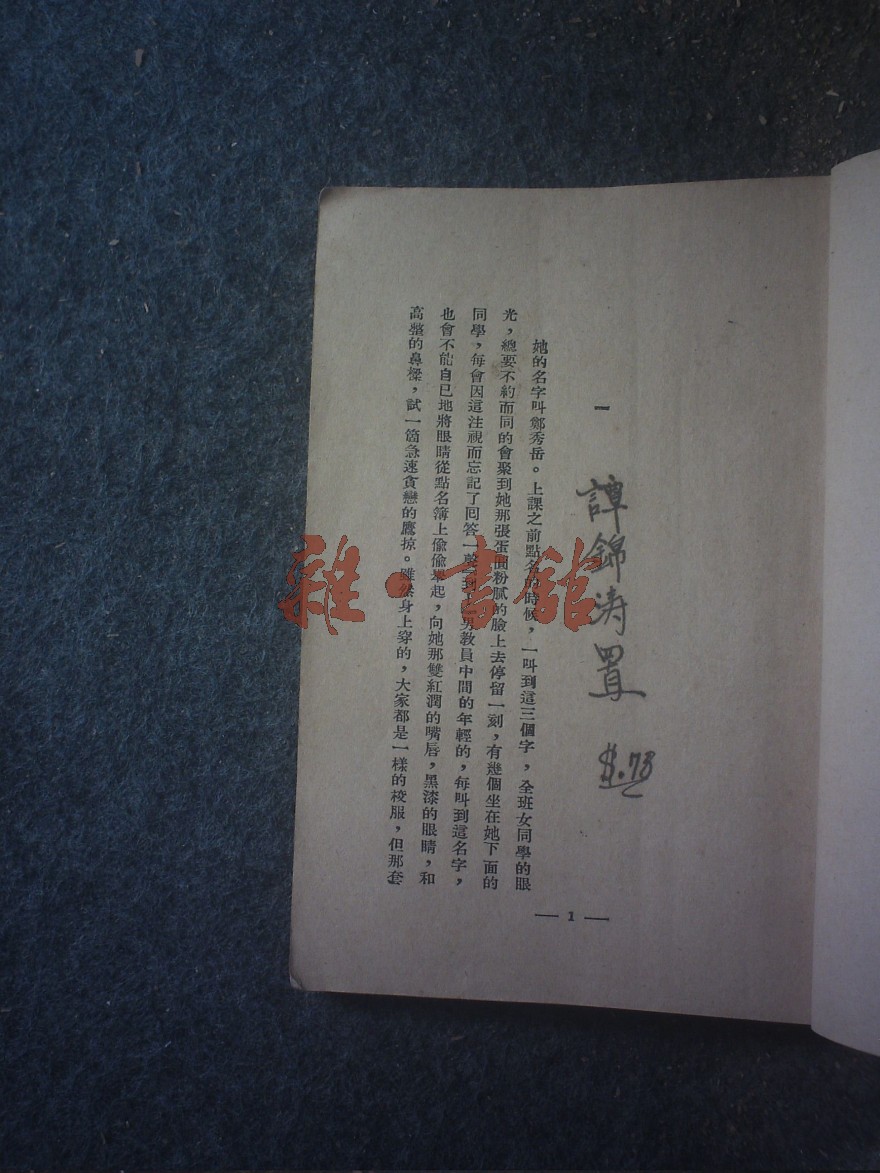 一
她的名字叫鄭秀岳。上課之前點名的時候，一叫到這三個字，全班女同學的眼
光，總要不約而同的會聚到她那張蛋圓粉膩的臉上去停留一刻，有幾個坐在她下面的
同學，每會因這注視而忘記了回答一聲到男教員中間的年輕的，每叫到這名字，
也會不能自已地將眼睛從點名簿上偷偷舉起，向她那雙紅潤的嘴唇，黑漆的眼睛，和
高整的鼻樑，試一箇急速貪戀的鷹掠。雖然身上穿的，大家都是一樣的校服，但那套
— 1 —
譚錦濤置
$.73
雜·書館